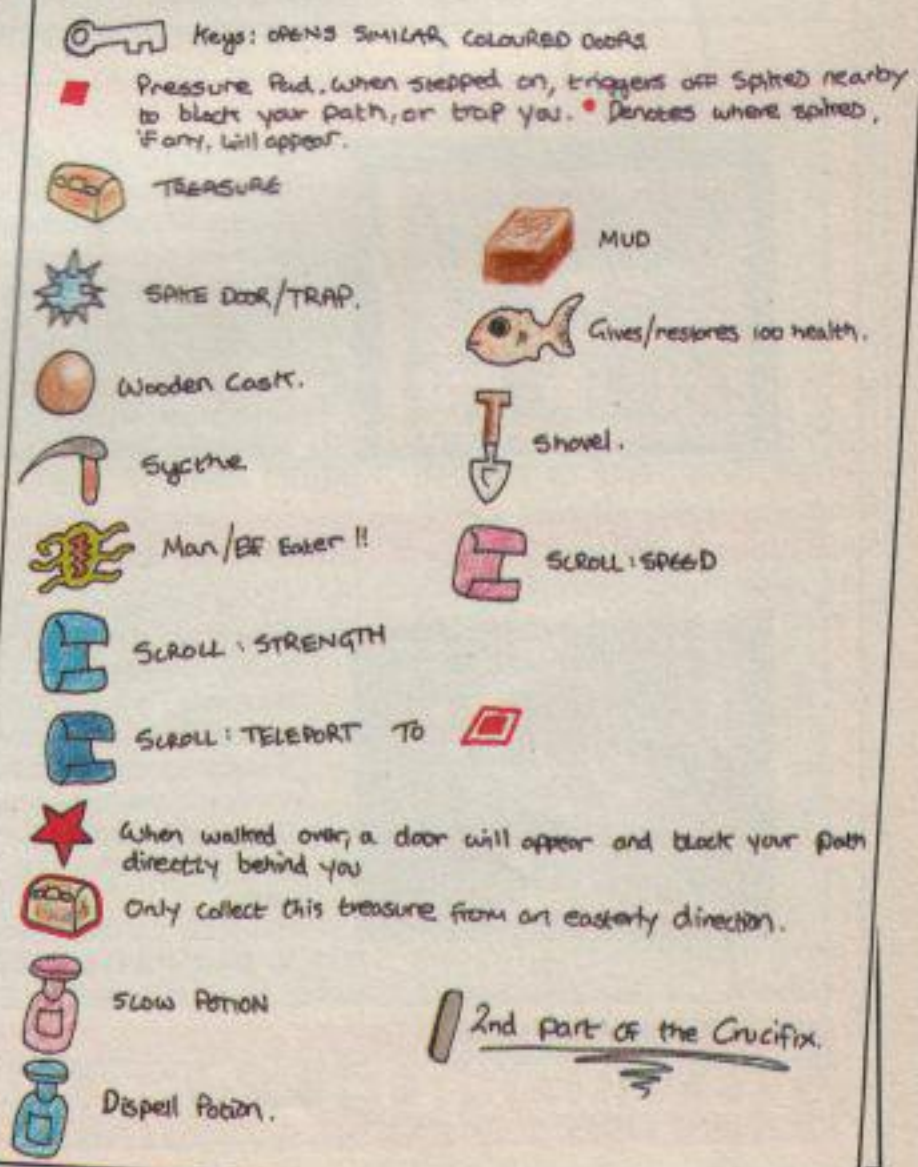 Keys: OPENS SIMILAR COLOURED DOORS
Pressure Pad, when stepped on, triggers off spikes nearby
to block your path, or trap you. • Denotes where spikes,
if any, will appear.
TREASURE
MUD
SPIKE DOOR/TRAP.
Gives/restores 100 health.
Wooden Cask.
Shovel.
Sycthe
Man/BF Eater!!
SCROLL: SPEED
SCROLL: STRENGTH
SCROLL: TELEPORT TO
When walked over, a door will appear and block your path
directly behind you
Only collect this treasure from an easterly direction.
SLOW POTION
2nd part of the Crucifix.
Dispell Potion.